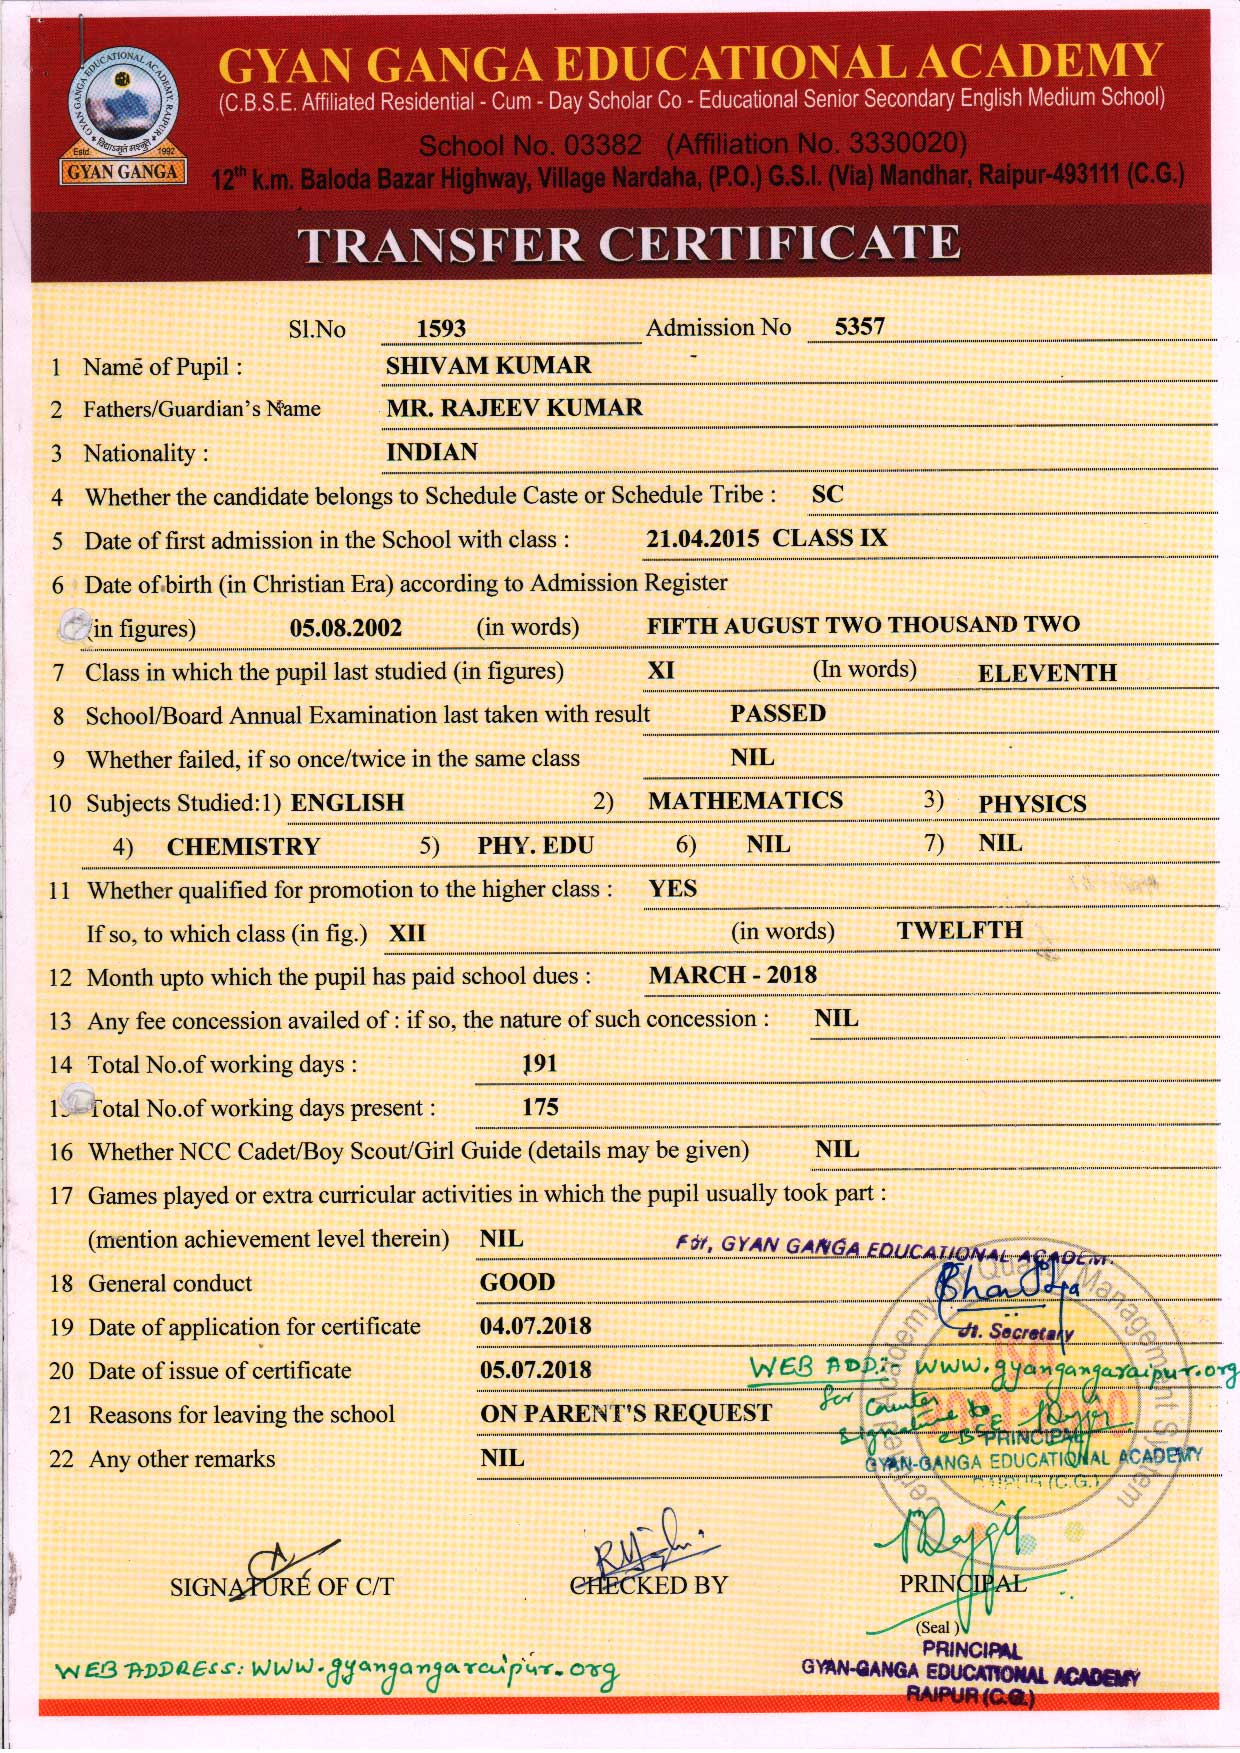 GYAN GANGA EDUCATIONAL ACADEMY
(C.B.S.E. Affiliated Residential - Cum - Day Scholar Co - Educational Senior Secondary English Medium School)
School No. 03382 (Affiliation No. 3330020)
12th k.m. Baloda Bazar Highway, Village Nardaha, (P.O.) G.S.I. (Via) Mandhar, Raipur-493111 (C.G.)
GYAN GANGA EDUCATIONAL ACADEMY, RAIPUR
विद्याऽमृतं मश्नुते
Estd. 1992
GYAN GANGA
TRANSFER CERTIFICATE
Sl.No 1593 Admission No 5357
1 Name of Pupil : SHIVAM KUMAR
2 Fathers/Guardian's Name MR. RAJEEV KUMAR
3 Nationality : INDIAN
4 Whether the candidate belongs to Schedule Caste or Schedule Tribe : SC
5 Date of first admission in the School with class : 21.04.2015 CLASS IX
6 Date of birth (in Christian Era) according to Admission Register
(in figures) 05.08.2002 (in words) FIFTH AUGUST TWO THOUSAND TWO
7 Class in which the pupil last studied (in figures) XI (In words) ELEVENTH
8 School/Board Annual Examination last taken with result PASSED
9 Whether failed, if so once/twice in the same class NIL
10 Subjects Studied:1) ENGLISH 2) MATHEMATICS 3) PHYSICS
4) CHEMISTRY 5) PHY. EDU 6) NIL 7) NIL
11 Whether qualified for promotion to the higher class : YES
If so, to which class (in fig.) XII (in words) TWELFTH
12 Month upto which the pupil has paid school dues : MARCH - 2018
13 Any fee concession availed of : if so, the nature of such concession : NIL
14 Total No.of working days : 191
15 Total No.of working days present : 175
16 Whether NCC Cadet/Boy Scout/Girl Guide (details may be given) NIL
17 Games played or extra curricular activities in which the pupil usually took part :
(mention achievement level therein) NIL
For, GYAN GANGA EDUCATIONAL ACADEM.
18 General conduct GOOD
Jt. Secretary
19 Date of application for certificate 04.07.2018
20 Date of issue of certificate 05.07.2018
WEB ADD:- www.gyangangaraipur.org
for Counter
Signature to
CBSE
21 Reasons for leaving the school ON PARENT'S REQUEST
PRINCIPAL
GYAN-GANGA EDUCATIONAL ACADEMY
RAIPUR (C.G.)
22 Any other remarks NIL
SIGNATURE OF C/T CHECKED BY PRINCIPAL
(Seal )
PRINCIPAL
GYAN-GANGA EDUCATIONAL ACADEMY
RAIPUR (C.G.)
WEB ADDRESS: www.gyangangaraipur.org